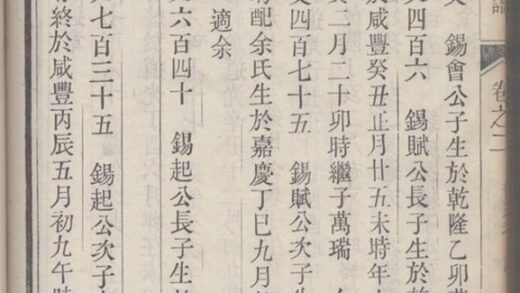 卷之二
錫會公子生於乾隆乙卯
四百六 錫賦公長子生於乾
於咸豐癸丑正月廿五未時年
二月二十卯時繼子萬瑞
四百七十五 錫賦公次子
配余氏生於嘉慶丁巳九月
適余
六百四十 錫起公長子生於
七百三十五 錫起公次子
終於咸豐丙辰五月初九午時